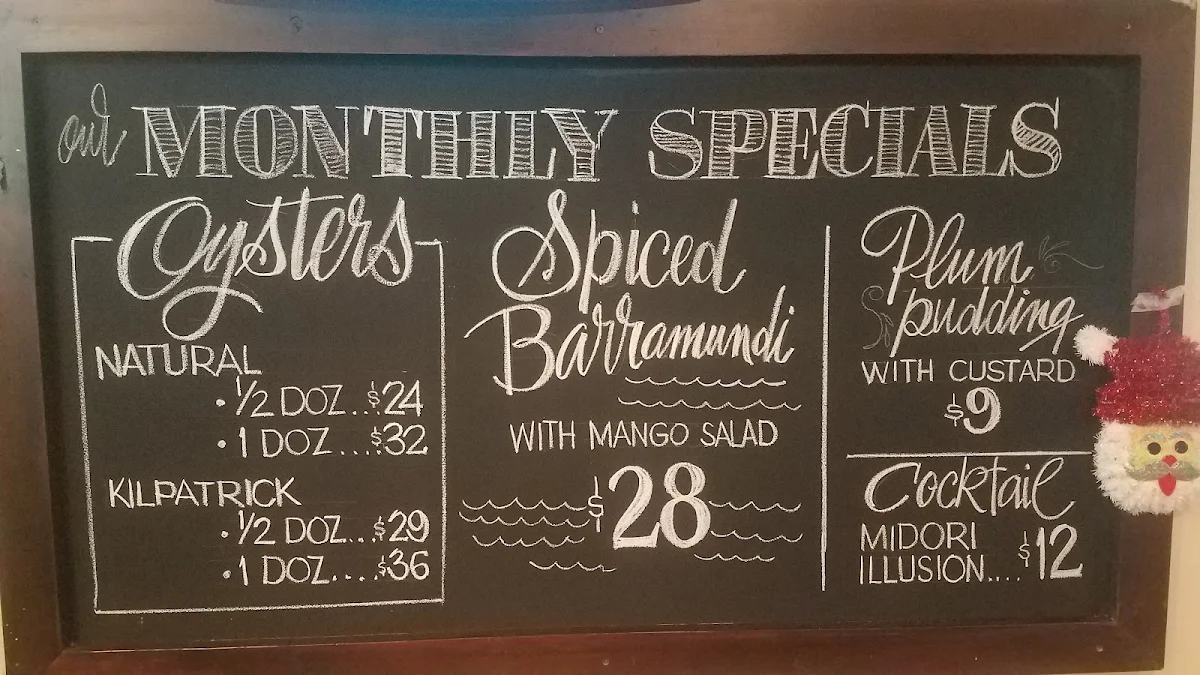 our MONTHLY SPECIALS
Oysters
NATURAL
• 1/2 DOZ...$24
• 1 DOZ....$32
KILPATRICK
• 1/2 DOZ...$29
• 1 DOZ....$36
Spiced
Barramundi
WITH MANGO SALAD
$28
Plum
pudding
WITH CUSTARD
$9
Cocktail
MIDORI
ILLUSION....$12